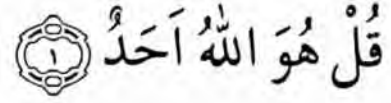 قُلْ هُوَ اللّٰهُ اَحَدٌ ۝١